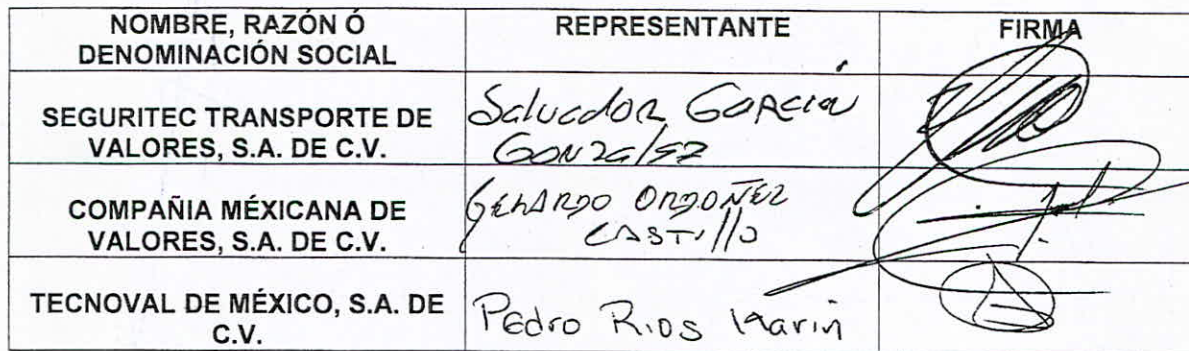 NOMBRE, RAZÓN Ó
DENOMINACIÓN SOCIAL
REPRESENTANTE
FIRMA
SEGURITEC TRANSPORTE DE
VALORES, S.A. DE C.V.
Salvador García
González
COMPAÑIA MÉXICANA DE
VALORES, S.A. DE C.V.
GERARDO ORDOÑEZ
CASTILLO
TECNOVAL DE MÉXICO, S.A. DE
C.V.
Pedro Rios Marin